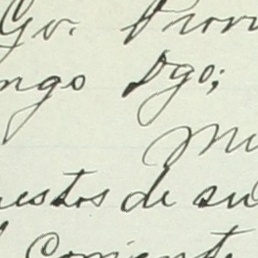 Gv. Provi
ngo Dgo;
Mu
uestos de su
Corriente